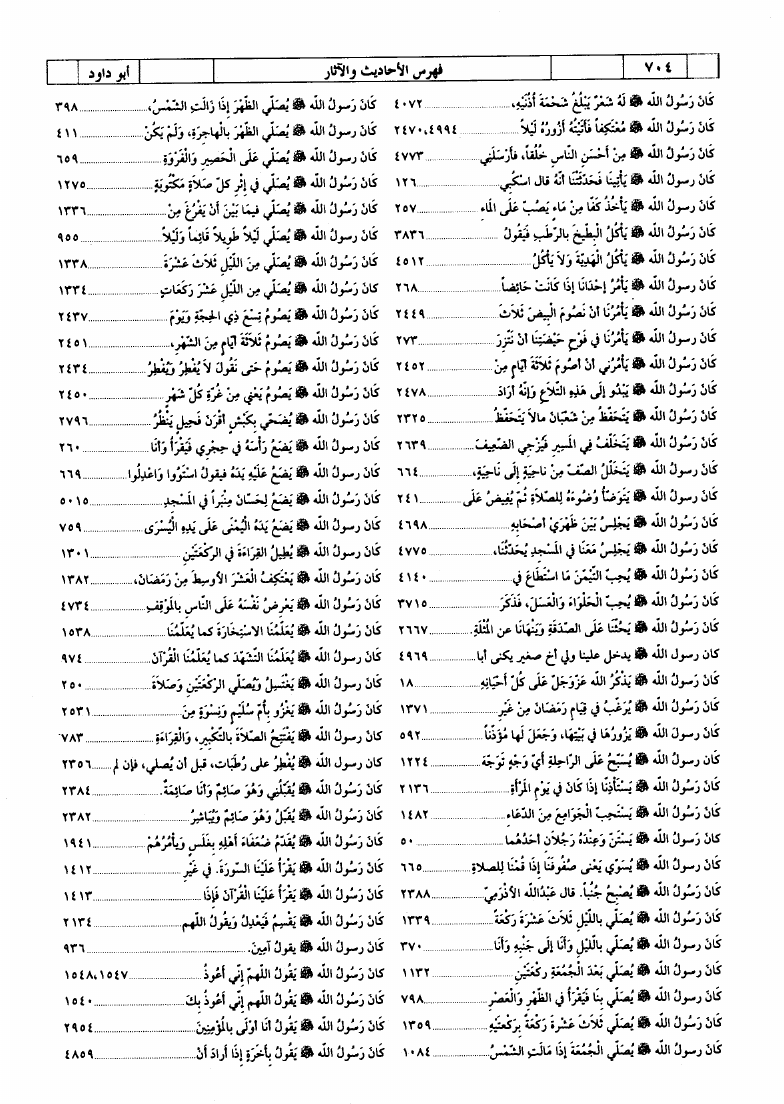 ٧٠٤
فهرس الأحاديث والآثار
أبو داود
كَانَ رَسُولُ الله ﷺ لَهُ شَعْرٌ يَبْلُغُ شَحْمَةَ أُذُنَيْهِ، ٤٠٧٢
كَانَ رَسُولُ الله ﷺ مُعْتَكِفاً فَأَتَيْتُهُ أَزُورُهُ لَيْلاً ٢٤٧٠،٤٩٩٤
كَانَ رَسُولُ الله ﷺ مِنْ أَحْسَنِ النَّاسِ خُلُقاً، فَأَرْسَلَنِي ٤٧٧٣
كَانَ رَسُولُ الله ﷺ يَأْتِينَا فَحَدَّثَتْنَا أَنَّهُ قال اسْكُبِي ١٢٦
كَانَ رَسُولُ الله ﷺ يَأْخُذُ كَفًّا مِنْ مَاءٍ يَصُبُّ عَلَى الْمَاءِ ٢٥٧
كَانَ رَسُولُ الله ﷺ يَأْكُلُ الْبِطِّيخَ بِالرُّطَبِ فَيَقُولُ ٣٨٣٦
كَانَ رَسُولُ الله ﷺ يَأْكُلُ الْهَدِيَّةَ وَلاَ يَأْكُلُ ٤٥١٢
كَانَ رَسُولُ الله ﷺ يَأْمُرُ إحْدَانَا إِذَا كَانَتْ حَائِضاً ٢٦٨
كَانَ رَسُولُ الله ﷺ يَأْمُرُنَا أَنْ نَصُومَ الْبِيضَ ثَلَاثَ ٢٤٤٩
كَانَ رَسُولُ الله ﷺ يَأْمُرُنَا في فَوْحِ حَيْضَتِنَا أَنْ نَتَّزِرَ ٢٧٣
كَانَ رَسُولُ الله ﷺ يَأْمُرُنِي أَنْ أَصُومَ ثَلَاثَةَ أَيَّامٍ مِنْ ٢٤٥٢
كَانَ رَسُولُ الله ﷺ يَبْدُو إِلَى هَذِهِ التِّلَاعِ وَإِنَّهُ أَرَادَ ٢٤٧٨
كَانَ رَسُولُ الله ﷺ يَتَحَفَّظُ مِنْ شَعْبَانَ مالاَ يَتَحَفَّظُ ٢٣٢٥
كَانَ رَسُولُ الله ﷺ يَتَخَلَّفُ في الْمَسِيرِ فَيُزْجِي الضَّعِيفَ ٢٦٣٩
كَانَ رَسُولُ الله ﷺ يَتَخَلَّلُ الصَّفَّ مِنْ نَاحِيَةٍ إِلَى نَاحِيَةٍ، ٦٦٤
كَانَ رَسُولُ الله ﷺ يَتَوَضَّأُ وُضُوءَهُ لِلصَّلَاةِ ثُمَّ يُفِيضُ عَلَى ٢٤١
كَانَ رَسُولُ الله ﷺ يَجْلِسُ بَيْنَ ظَهْرَيْ أَصْحَابِهِ ٤٦٩٨
كَانَ رَسُولُ الله ﷺ يَجْلِسُ مَعَنَا في المَسْجِدِ يُحَدِّثُنَا، ٤٧٧٥
كَانَ رَسُولُ الله ﷺ يُحِبُّ التَّيَمُّنَ مَا اسْتَطَاعَ في ٤١٤٠
كَانَ رَسُولُ الله ﷺ يُحِبُّ الْحَلْوَاءَ وَالْعَسَلَ، فَذَكَرَ ٣٧١٥
كَانَ رَسُولُ الله ﷺ يَحُثُّنَا عَلَى الصَّدَقَةِ وَيَنْهَانَا عن الْمُثْلَةِ. ٢٦٦٧
كان رسول الله ﷺ يدخل علينا ولي أخ صغير يكنى أبا ٤٩٦٩
كَانَ رَسُولُ الله ﷺ يَذْكُرُ الله عَزَّوَجَلَّ عَلَى كُلِّ أَحْيَانِهِ ١٨
كَانَ رَسُولُ الله ﷺ يُرَغِّبُ في قِيَامِ رَمَضَانَ مِنْ غَيْرِ ١٣٧١
كَانَ رَسُولُ الله ﷺ يَزُورُهَا في بَيْتِهَا، وَجَعَلَ لَهَا مُؤَذِّناً ٥٩٢
كَانَ رَسُولُ الله ﷺ يُسَبِّحُ عَلَى الرَّاحِلَةِ أَيَّ وَجْهٍ تَوَجَّهَ ١٢٢٤
كَانَ رَسُولُ الله ﷺ يَسْتَأْذِنَّا إِذَا كَانَ في يَوْمِ الْمَرْأَةِ ٢١٣٦
كَانَ رَسُولُ الله ﷺ يَسْتَحِبُّ الْجَوَامِعَ مِنَ الدُّعَاءِ ١٤٨٢
كَانَ رَسُولُ الله ﷺ يَسْتَنُّ وَعِنْدَهُ رَجُلَانِ أَحَدُهُمَا ٥٠
كَانَ رسولُ الله ﷺ يُسَوِّي يَعْنى صُفُوفَنَا إِذَا قُمْنَا لِلصلاةِ ٦٦٥
كَانَ رَسُولُ الله ﷺ يُصْبِحُ جُنُباً. قال عَبْدُالله الأَذْرَمِيُّ ٢٣٨٨
كَانَ رَسُولُ الله ﷺ يُصَلِّي بِاللَّيْلِ ثَلَاثَ عَشْرَةَ رَكْعَةً ١٣٣٩
كَانَ رَسُولُ الله ﷺ يُصَلِّي بِاللَّيْلِ وَأَنَا إِلَى جَنْبِهِ وَأَنَا ٣٧٠
كَانَ رَسُولُ الله ﷺ يُصَلِّي بَعْدَ الْجُمُعَةِ رَكْعَتَيْنِ ١١٣٢
كَانَ رَسُولُ الله ﷺ يُصَلِّي بِنَا فَيَقْرَأُ في الظُّهْرِ وَالْعَصْرِ ٧٩٨
كَانَ رسولُ الله ﷺ يُصَلِّي ثَلَاثَ عَشْرَةَ رَكْعَةً بِرَكْعَتَيْهِ ١٣٥٩
كَانَ رسولُ الله ﷺ يُصَلِّي الْجُمُعَةَ إِذَا مَالَتِ الشَّمْسُ ١٠٨٤
كَانَ رَسولُ الله ﷺ يُصَلِّي الظُّهْرَ إِذَا زَالَتِ الشَّمْسُ، ٣٩٨
كَانَ رسولُ الله ﷺ يُصَلِّي الظُّهْرَ بالْهَاجِرَةِ، وَلَمْ يَكُنْ ٤١١
كَانَ رَسُولُ الله ﷺ يُصَلِّي عَلَى الْحَصِيرِ وَالْفَرْوَةِ ٦٥٩
كَانَ رَسُولُ الله ﷺ يُصَلِّي في إِثْرِ كلِّ صَلَاةٍ مَكْتُوبَةٍ ١٢٧٥
كَانَ رَسُولُ الله ﷺ يُصَلِّي فيمَا بَيْنَ أَنْ يَفْرُغَ مِنْ ١٣٣٦
كَانَ رَسُولُ الله ﷺ يُصَلِّي لَيْلاً طَوِيلاً قَائِماً وَلَيْلاً ٩٥٥
كَانَ رَسُولُ الله ﷺ يُصَلِّي مِنَ اللَّيْلِ ثَلَاثَ عَشْرَةَ ١٣٣٨
كَانَ رَسُولُ الله ﷺ يُصَلِّي مِن اللَّيْلِ عَشْرَ رَكَعَاتٍ ١٣٣٤
كَانَ رَسُولُ الله ﷺ يَصُومُ تِسْعَ ذِي الحِجَّةِ وَيَوْمَ ٢٤٣٧
كَانَ رَسُولُ الله ﷺ يَصُومُ ثَلَاثَةَ أَيَّامٍ مِنَ الشَّهْرِ، ٢٤٥١
كَانَ رَسُولُ الله ﷺ يَصُومُ حَتى نَقُولَ لاَ يُفْطِرُ وَيُفْطِرُ ٢٤٣٤
كَانَ رَسُولُ الله ﷺ يَصُومُ يَعْنِي مِنْ غُرَّةِ كُلِّ شَهْرٍ ٢٤٥٠
كَانَ رَسُولُ الله ﷺ يُضَحِّي بِكَبْشٍ أَقْرَنَ فَحِيلٍ يَنْظُرُ ٢٧٩٦
كَانَ رَسُولُ الله ﷺ يَضَعُ رَأْسَهُ في حِجْرِي فَيَقْرَأُ وَأَنَا ٢٦٠
كَانَ رَسُولُ الله ﷺ يَضَعُ عَلَيْهِ يَدَهُ فيقولُ اسْتَوُوا وَاعْدِلُوا ٦٦٩
كَانَ رَسُولُ الله ﷺ يَضَعُ لِحَسَّانَ مِنْبَراً في الْمَسْجِدِ ٥٠١٥
كَانَ رَسُولُ الله ﷺ يَضَعُ يَدَهُ الْيُمْنَى عَلَى يَدِهِ الْيُسْرَى ٧٥٩
كَانَ رَسُولُ الله ﷺ يُطِيلُ الْقِرَاءَةَ في الرَّكْعَتَيْنِ ١٣٠١
كَانَ رَسُولُ الله ﷺ يَعْتَكِفُ الْعَشْرَ الأَوْسِطَ مِنْ رَمَضَانَ، ١٣٨٢
كَانَ رَسُولُ الله ﷺ يَعْرِضُ نَفْسَهُ عَلَى النَّاسِ بِالْمَوْقِفِ ٤٧٣٤
كَانَ رسولُ الله ﷺ يُعَلِّمُنَا الاسْتِخَارَةَ كما يُعَلِّمُنَا ١٥٣٨
كَانَ رسولُ الله ﷺ يُعَلِّمُنَا التَّشَهُّدَ كما يُعَلِّمُنَا الْقُرْآنَ ٩٧٤
كَانَ رَسُولُ الله ﷺ يَغْتَسِلُ وَيُصَلِّي الركْعَتَيْنِ وَصَلَاةَ ٢٥٠
كَانَ رَسُولُ الله ﷺ يَغْزُو بِأُمِّ سُلَيْمٍ وَنِسْوَةٍ مِنَ ٢٥٣١
كَانَ رَسُولُ الله ﷺ يَفْتَتِحُ الصَّلَاةَ بالتَّكْبِيرِ، وَالْقِرَاءَةِ ٧٨٣
كان رسول الله ﷺ يُفْطِرُ على رُطَبَات، قبل أن يُصلي، فإن لم ٢٣٥٦
كَانَ رَسُولُ الله ﷺ يُقَبِّلُنِي وَهُوَ صَائِمٌ وَأَنَا صَائِمَةٌ. ٢٣٨٤
كَانَ رَسُولُ الله ﷺ يُقَبِّلُ وَهُوَ صَائِمٌ وَيُبَاشِرُ ٢٣٨٢
كَانَ رَسُولُ الله ﷺ يُقَدِّمُ ضُعَفَاءَ أَهْلِهِ بِغَلَسٍ وَيَأْمُرُهُمْ ١٩٤١
كَانَ رَسُولُ الله ﷺ يَقْرَأُ عَلَيْنَا السُّورَةَ. في غَيْرِ ١٤١٢
كَانَ رَسُولُ الله ﷺ يَقْرَأُ عَلَيْنَا الْقُرْآنَ فَإِذَا ١٤١٣
كَانَ رَسُولُ الله ﷺ يَقْسِمُ فَيَعْدِلُ وَيَقُولُ اللهم ٢١٣٤
كَانَ رسولُ الله ﷺ يقولُ آمِينَ. ٩٣٦
كانَ رَسُولُ الله ﷺ يَقُولُ اللهمّ إِنِّي أَعُوذُ ١٥٤٨،١٥٤٧
كَانَ رَسُولُ الله ﷺ يَقُولُ اللهم إِنِّي أَعُوذُ بِكَ ١٥٤٠
كَانَ رَسُولُ الله ﷺ يَقُولُ أَنَا أَوْلَى بِالْمُؤْمِنِينَ ٢٩٥٤
كَانَ رَسُولُ الله ﷺ يَقُولُ بِأَخَرَةٍ إِذَا أَرادَ أَنْ ٤٨٥٩